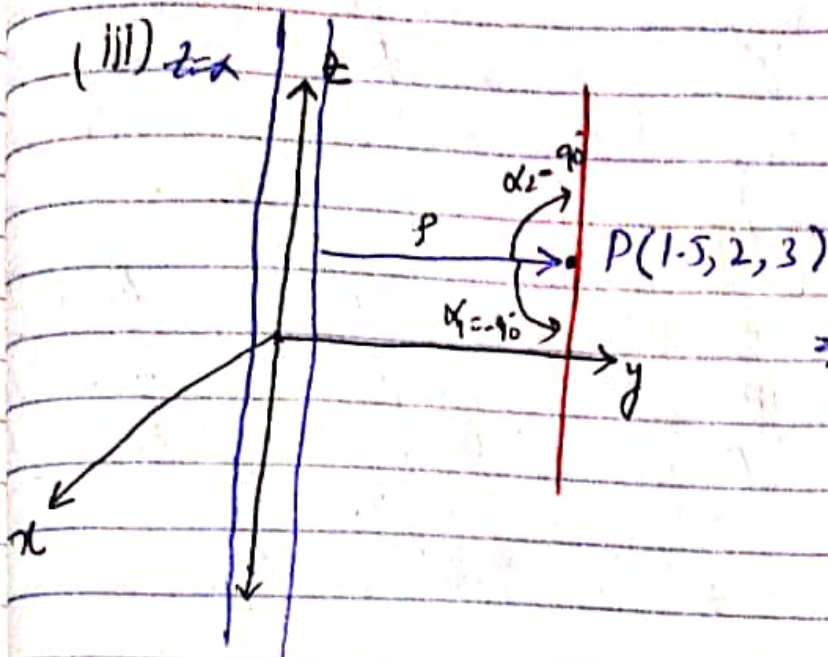 (iii) z=∝
z
α₂=90°
ρ
P(1.5, 2, 3)
α₁=-90°
y
x